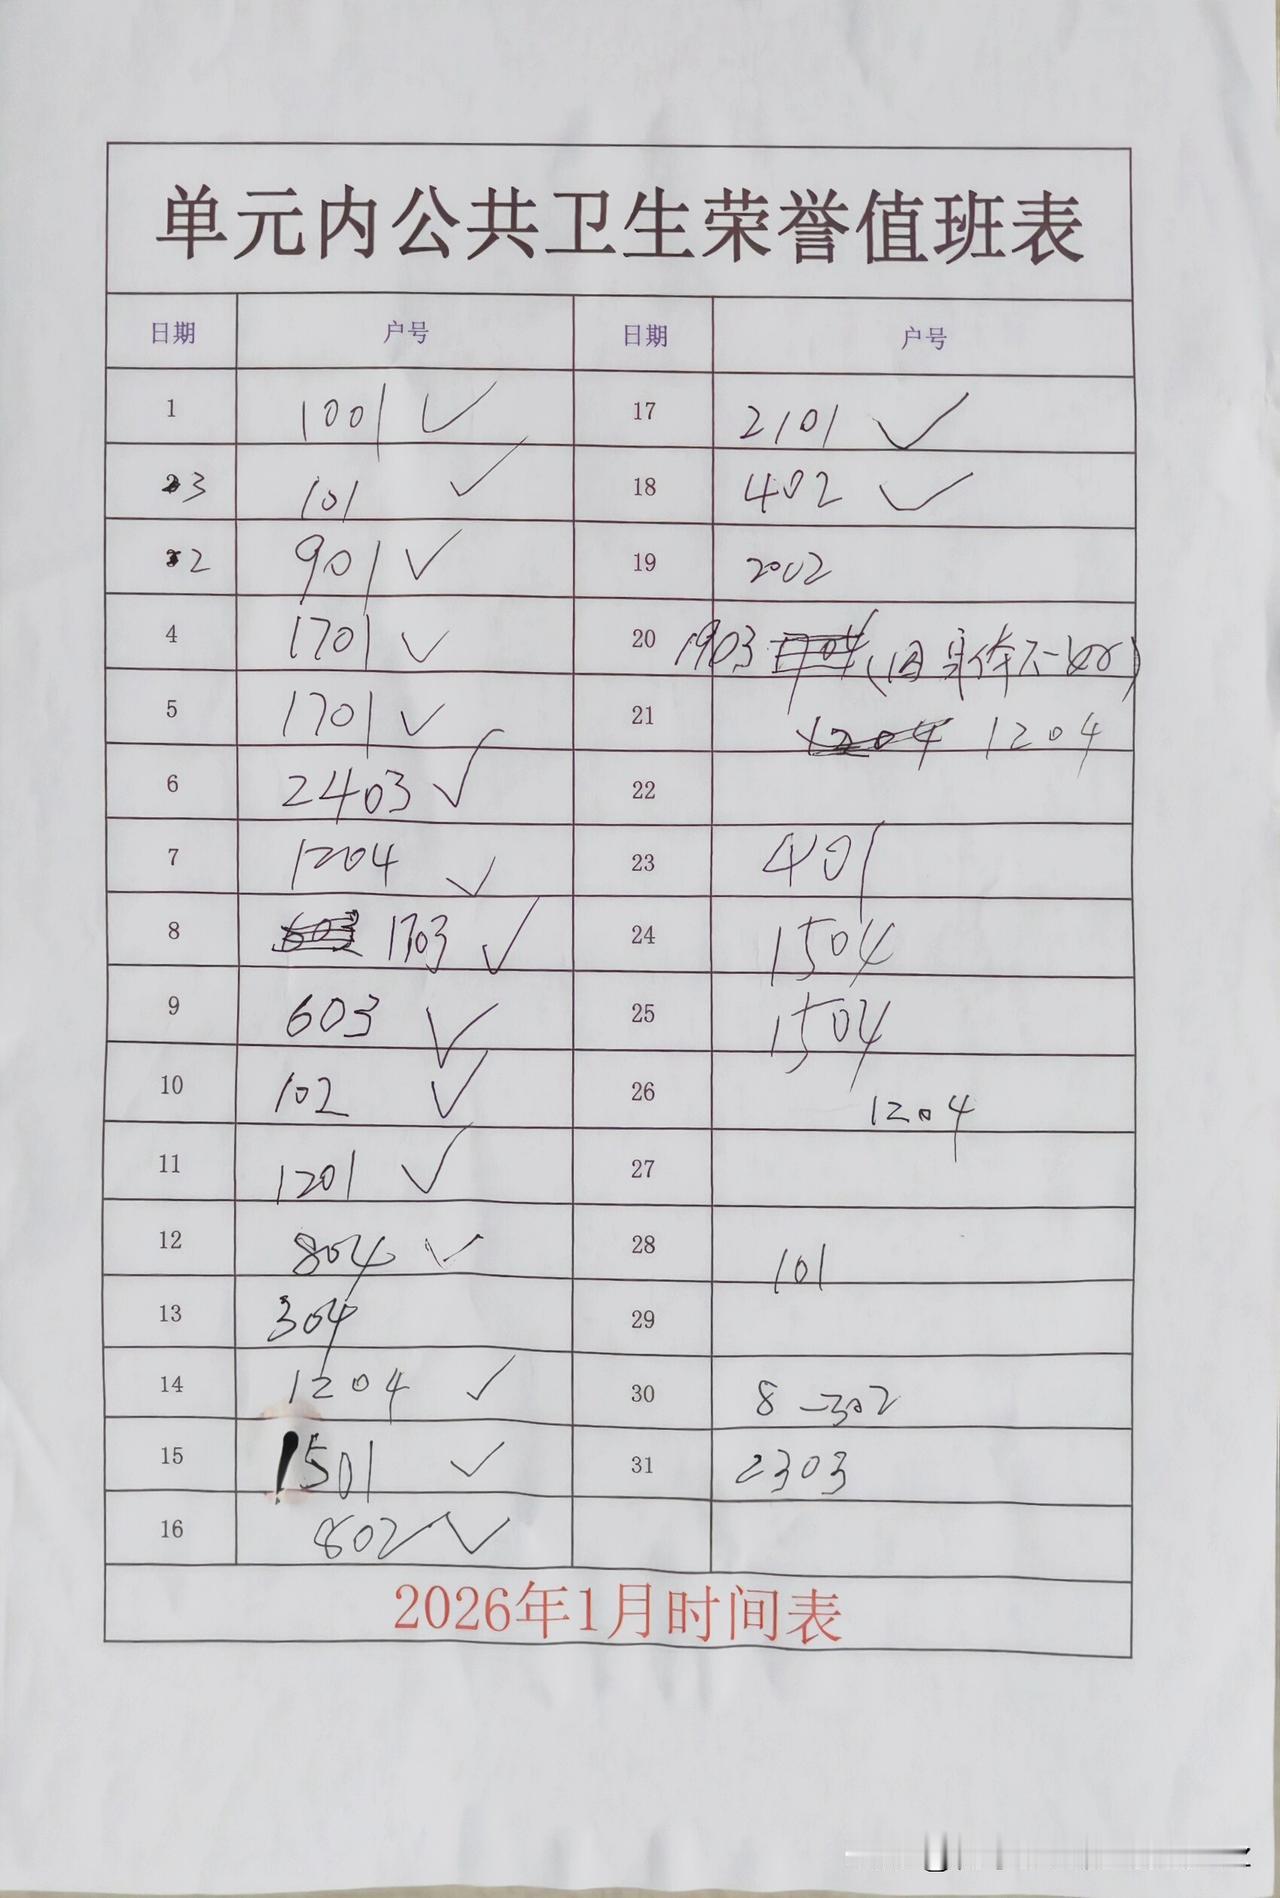 单元内公共卫生荣誉值班表
日期 户号 日期 户号
1 1001 ✓ 17 2101 ✓
3 101 ✓ 18 402 ✓
2 901 ✓ 19 2002
4 1701 ✓ 20 1903 1704 (因身体不好)
5 1701 ✓ 21 1204 1204
6 2403 ✓ 22
7 1204 ✓ 23 401
8 603 1703 ✓ 24 1504
9 603 ✓ 25 1504
10 102 ✓ 26 1204
11 1201 ✓ 27
12 804 ✓ 28 101
13 304 29
14 1204 ✓ 30 8-302
15 1501 ✓ 31 2303
16 802 ✓
2026年1月时间表